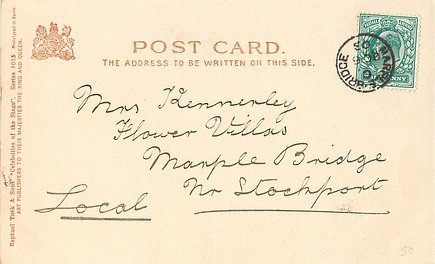 POST CARD.
THE ADDRESS TO BE WRITTEN ON THIS SIDE.
Mrs Kennerley
Flower Villas
Marple Bridge
Nr Stockport
Local
Raphael Tuck & Sons' "Celebrities of the Stage". Series 1015
ART PUBLISHERS TO THEIR MAJESTIES THE KING AND QUEEN.
MARPLE BRIDGE